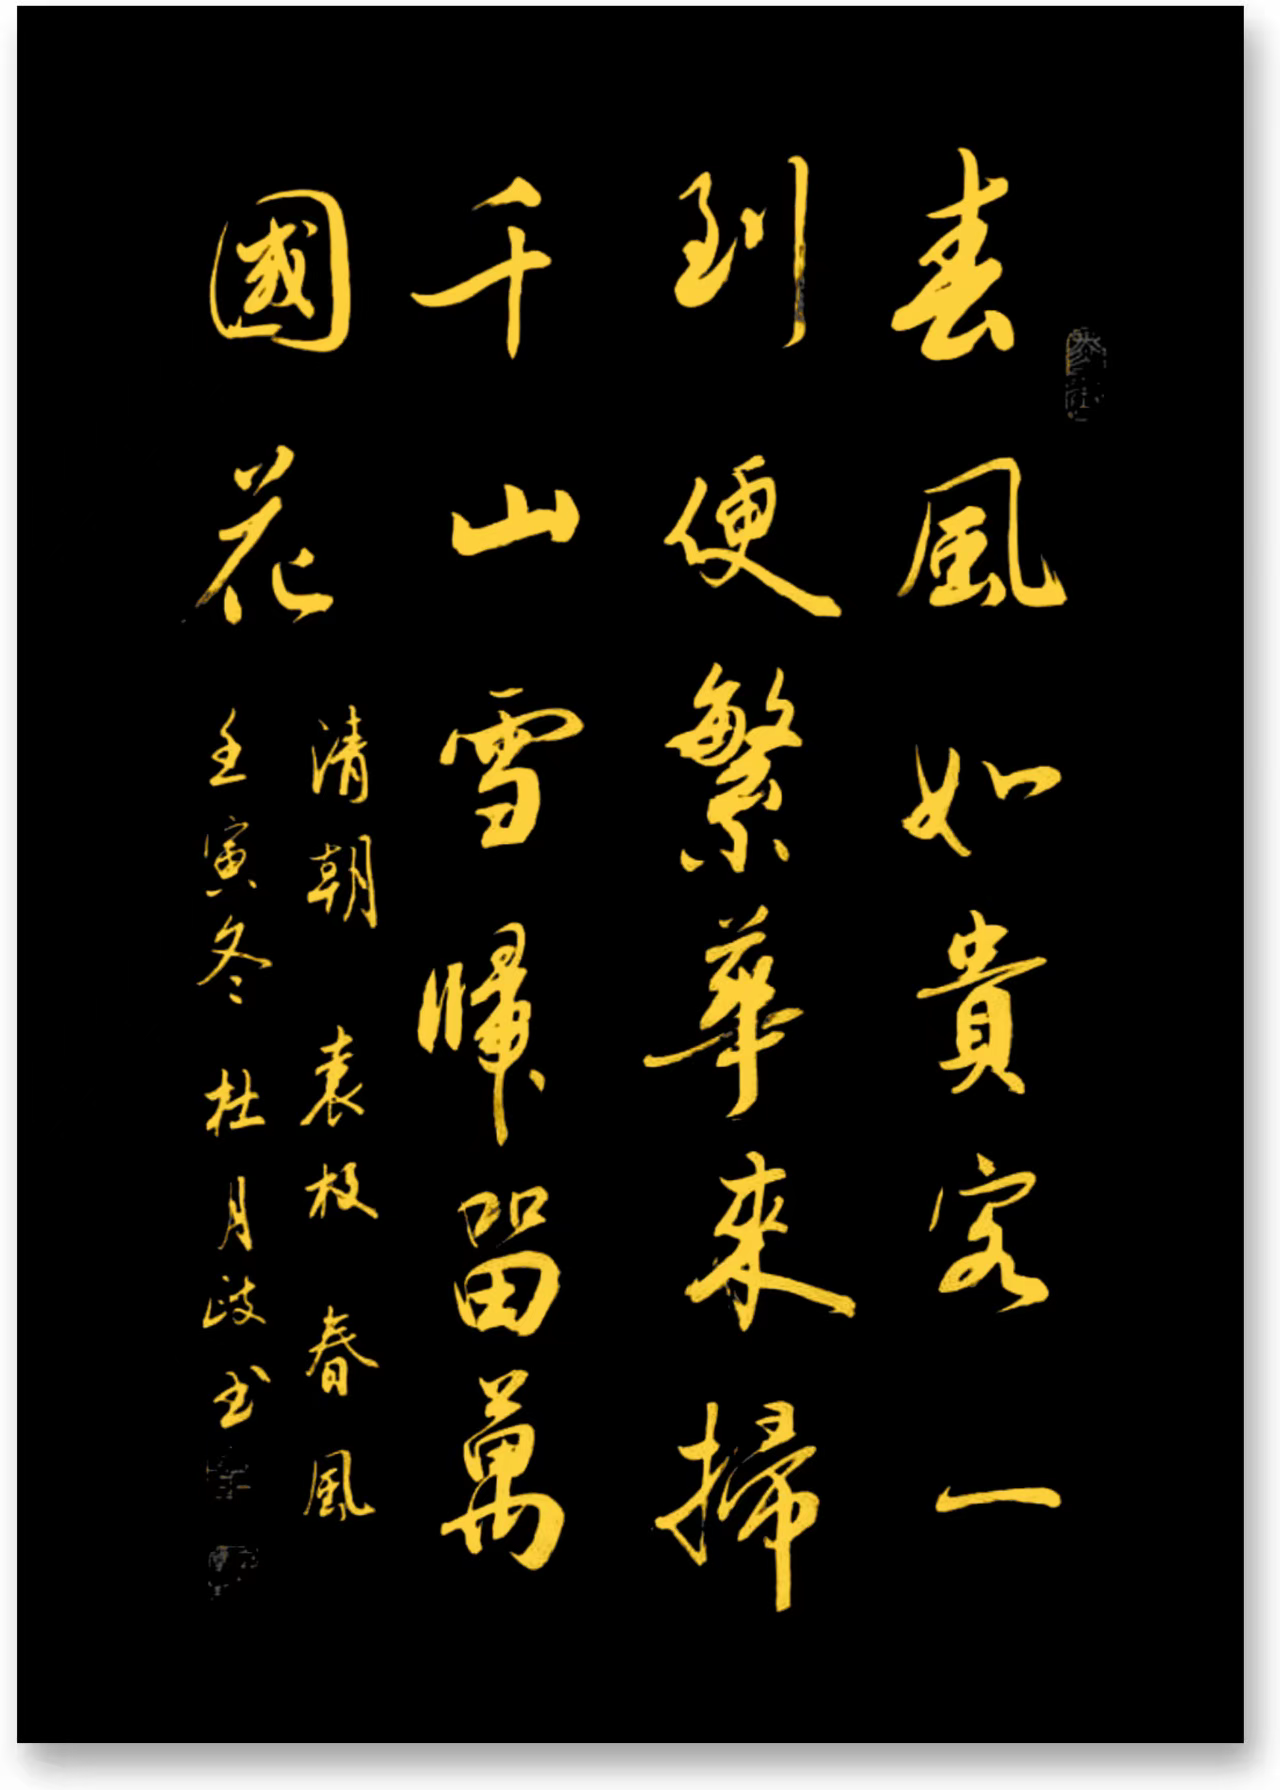 春風如貴客一
到便繁華來掃
千山雪歸留萬
國花
清朝 袁枚 春風
壬寅冬 杜月政书